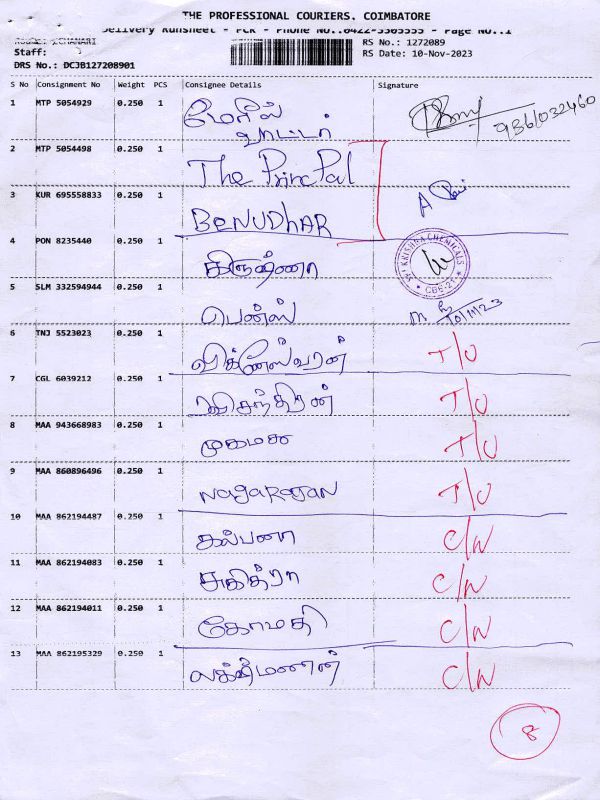 THE PROFESSIONAL COURIERS. COIMBATORE
Delivery Runsheet - PCR - Phone No.:0422-3505555 - Page No.:1
Staff:
DRS No.: DCJB127208901
RS No.: 1272089
RS Date: 10-Nov-2023
S No Consignment No Weight PCS Consignee Details Signature
1 MTP 5054929 0.250 1 மேரில் 9361032460
2 MTP 5054498 0.250 1 The PrincPal
3 KUR 695558833 0.250 1 BeNUDHAR
4 PON 8235440 0.250 1 கிருஷ்ணா SRI KRISHNA CHEMICALS CBE-21
5 SLM 332594944 0.250 1 பென்ஸ் 10/11/23
6 TNJ 5523023 0.250 1 விக்னேஸ்வரன் T/O
7 CGL 6039212 0.250 1 T/O
8 MAA 943668983 0.250 1 T/O
9 MAA 860896496 0.250 1 NagaRaJaN T/O
10 MAA 862194487 0.250 1 கல்பனா C/N
11 MAA 862194083 0.250 1 சுசித்ரா C/N
12 MAA 862194011 0.250 1 கோமதி C/N
13 MAA 862195329 0.250 1 லக்ஷ்மணன் C/N
8